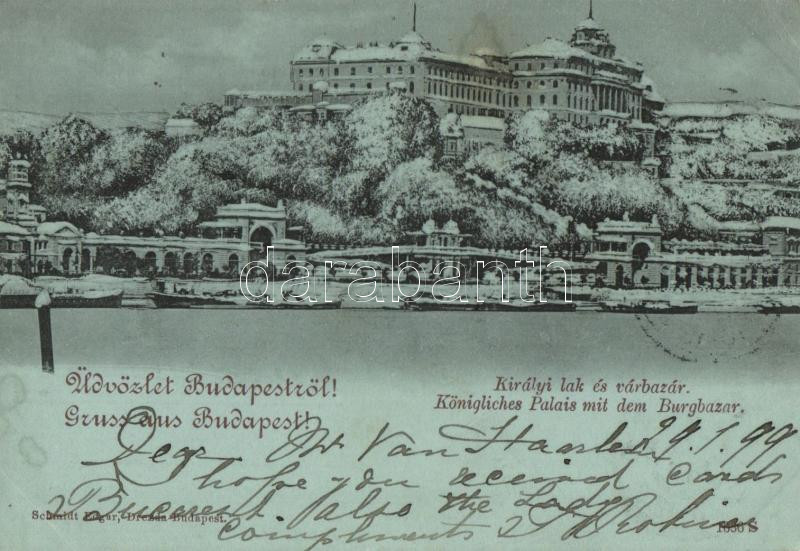 darabanth
Üdvözlet Budapestről!
Gruss aus Budapest!
Királyi lak és várbazár.
Königliches Palais mit dem Burgbazar.
Dear Mr Van Haarlem 29.1.99
I hope you received cards
also the Lady
compliments
Schmidt Edgar, Dresda-Budapest.